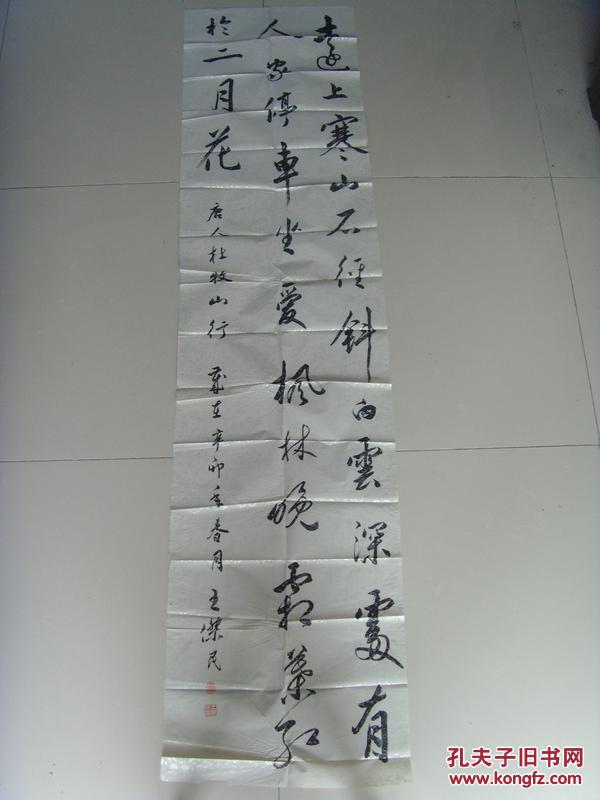 遠上寒山石徑斜白雲深處有
人家停車坐愛楓林晚霜葉紅
於二月花
唐人杜牧山行 歲在辛卯年春月 王傑民
孔夫子旧书网
www.kongfz.com